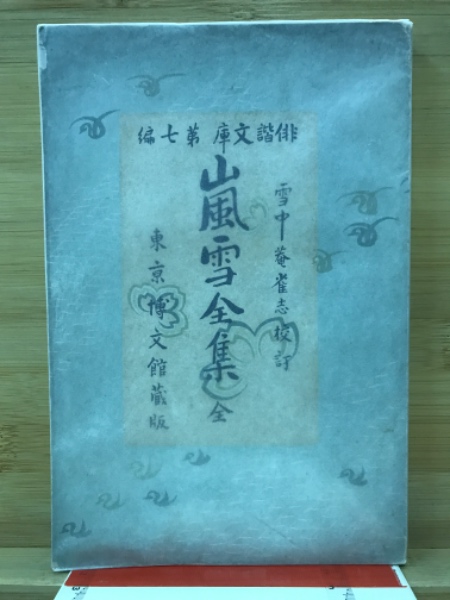 俳諧文庫第七編
雪中菴雀志校訂
嵐雪全集全
東京博文館蔵版